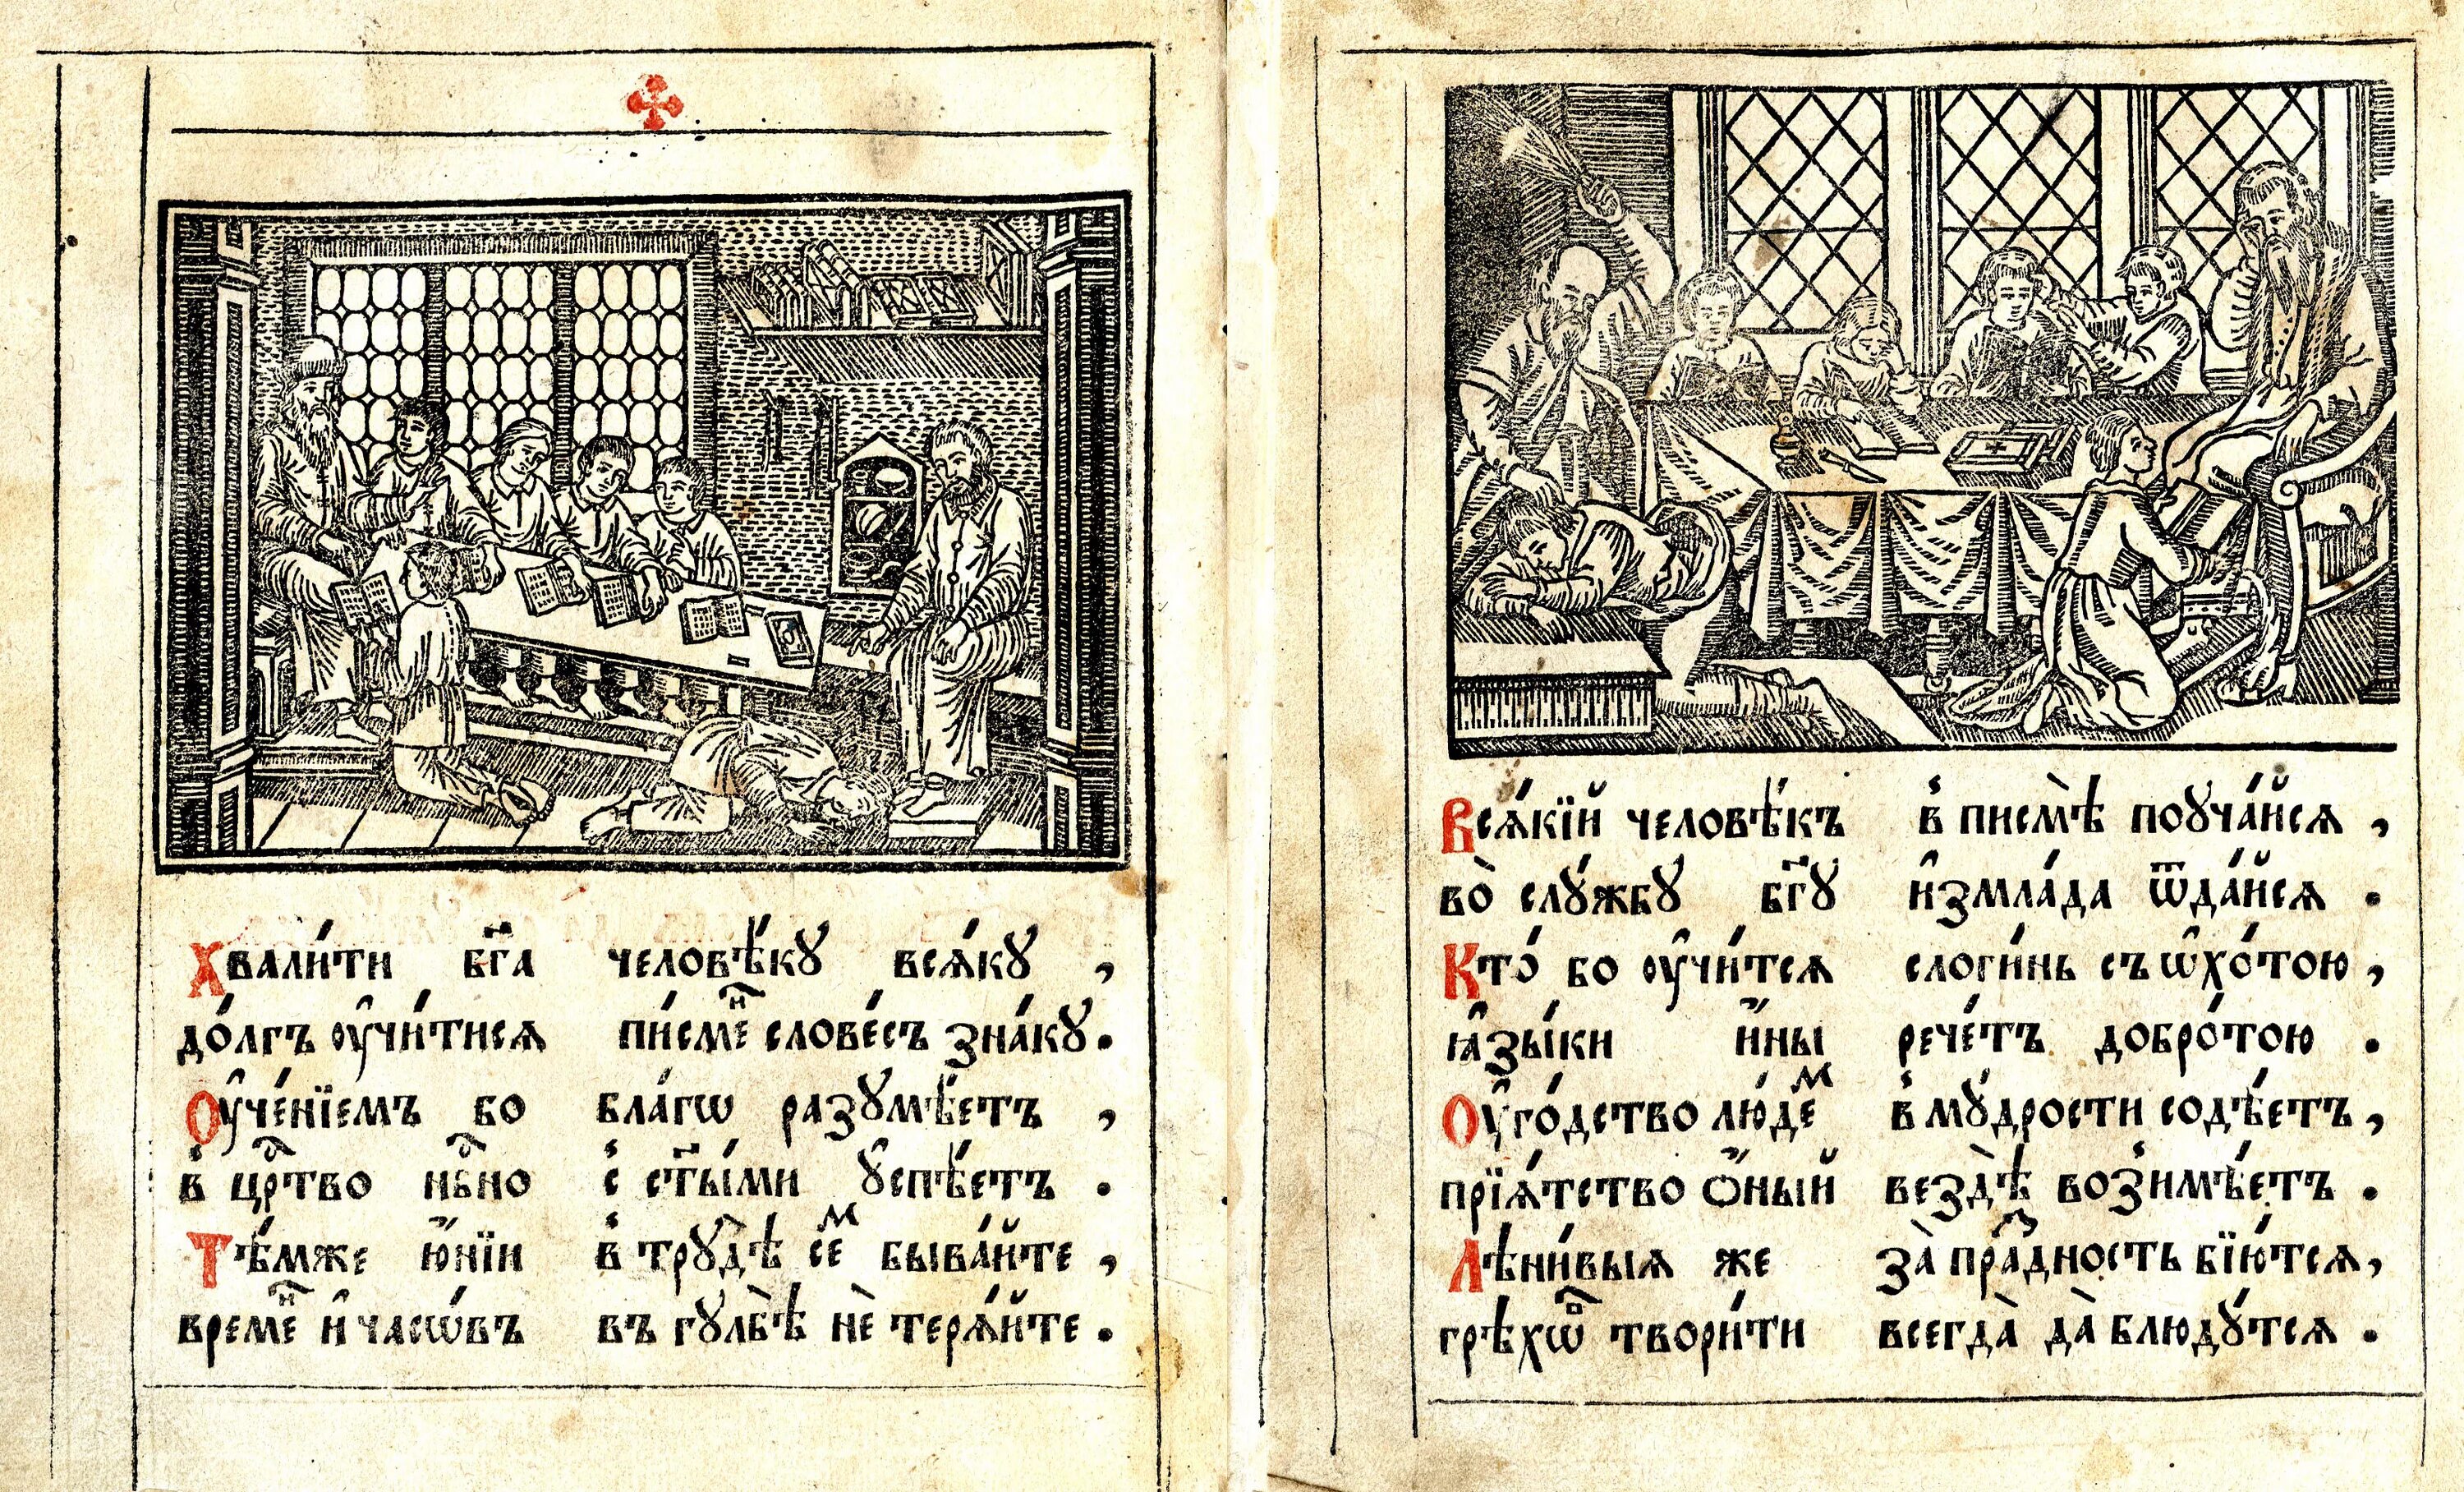 Хвали́ти бг҃а человѣ́ку всѧ́ку ,
до́лгъ оу҆чи́тисѧ пи́смеⷩ҇ слове́съ зна́ку.
Оу҆че́нїемъ бо бла́гѡ разꙋмѣ́етъ ,
в̾ црⷭ҇тво нбⷭ҇но с̾ ст҃ы́ми ᲂу҆спѣ́етъ .
Тѣ́мже ю҆́нїи в̾ трꙋдѣ̀ сеⷨ быва́йте ,
времеⷩ҇ и҆ часѡ́въ въ гꙋлбѣ̀ нѐ терѧ́йте .
Всѧ́кїй человѣ́къ в̾ писмѣ̀ поꙋча́йсѧ ,
во̀ слꙋ́жбꙋ бг҃ꙋ и҆змла́да ѿда́йсѧ .
Кто́ бо оу҆чи́тсѧ слоги́нь съ ѡ҆хо́тою ,
ꙗ҆зы́ки и҆́ны рече́тъ добро́тою .
Оу҆го́дство лю́деⷨ в̾ мꙋ́дрости содѣ́етъ ,
прїѧ́тство ѻ҆́ный вездѣ̀ воз̾имѣ́етъ .
Лѣни́выѧ же за̀ праⷥ҇дность бїю́тсѧ ,
грѣхѡⷡ҇ твори́ти всегда̀ да̀ блюдꙋ́тсѧ .